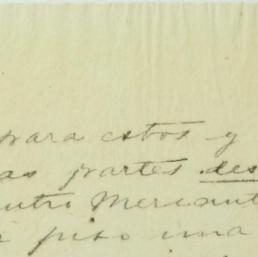 para estos y
as partes des
entro Mercant
piso una